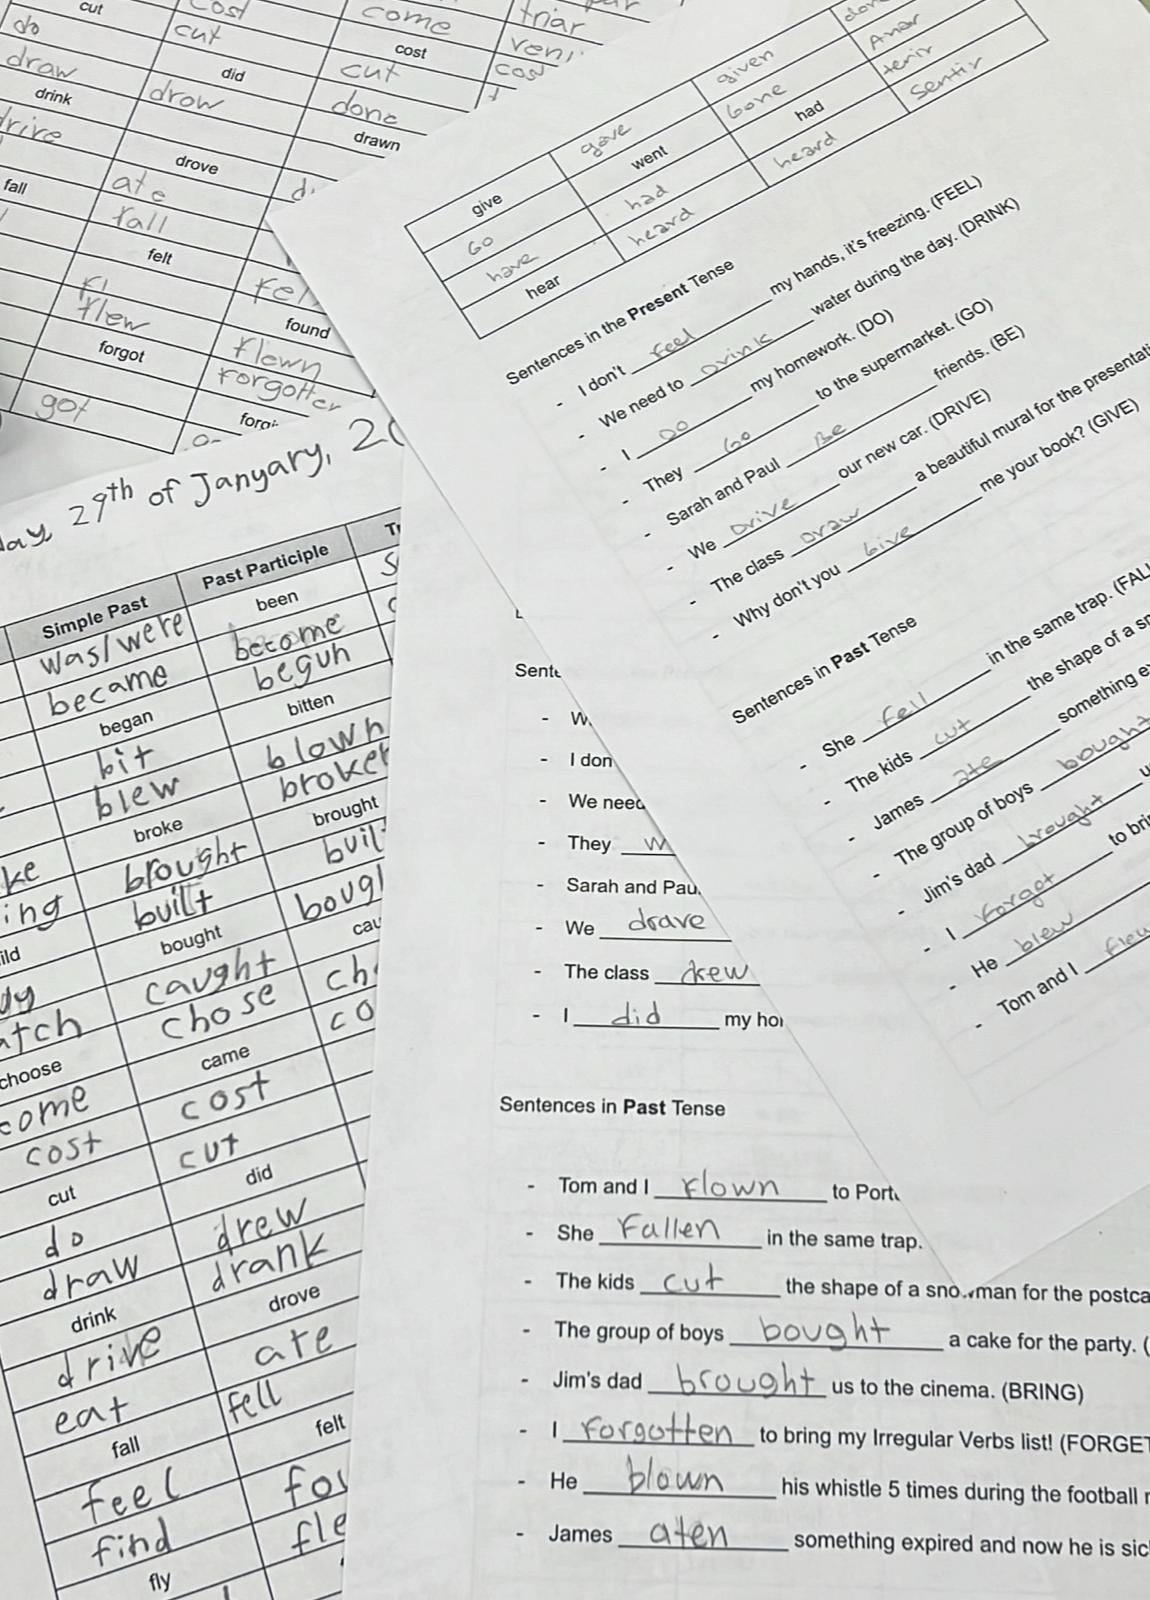 cut cost come triar
do cut cost veni
draw did cut cos
drink drow done
drive drawn
drove
fall ate
fall
felt
fell
flew found
forgot flewn
forgotter
got
29th of Janyary, 20
Simple Past Past Participle
was/were been
became become
began begun
bit bitten
blew blown
broke broken
brought brought
ing built
bought
caught
atch chose co
choose came
come cost
cost cut
cut did
do drew
draw drank
drink drove
drive ate
eat fell
fall felt
feel
find fle
fly
give gave given
Go went Gone
have had had tenir
hear heard heard sentir
Sentences in the Present Tense
- I don't feel my hands, it's freezing. (FEEL)
- We need to Drink water during the day. (DRINK)
- I DO my homework. (DO)
- They Go to the supermarket. (GO)
- Sarah and Paul Be friends. (BE)
- We Drive our new car. (DRIVE)
- The class Draw a beautiful mural for the presentati
- Why don't you Give me your book? (GIVE)
Sentences in Past Tense
- She fell in the same trap. (FAL
- The kids cut the shape of a sn
- James ate something e
- The group of boys bought
- Jim's dad brought
- I forgot to bri
- He blew
- Tom and I flew
Sente
- W
- I don
- We need
- They W
- Sarah and Pau
- We drave
- The class drew
- I did my ho
Sentences in Past Tense
- Tom and I flown to Port
- She Fallen in the same trap.
- The kids cut the shape of a snowman for the postca
- The group of boys bought a cake for the party. (
- Jim's dad brought us to the cinema. (BRING)
- I forgotten to bring my Irregular Verbs list! (FORGET
- He blown his whistle 5 times during the football
- James aten something expired and now he is sic